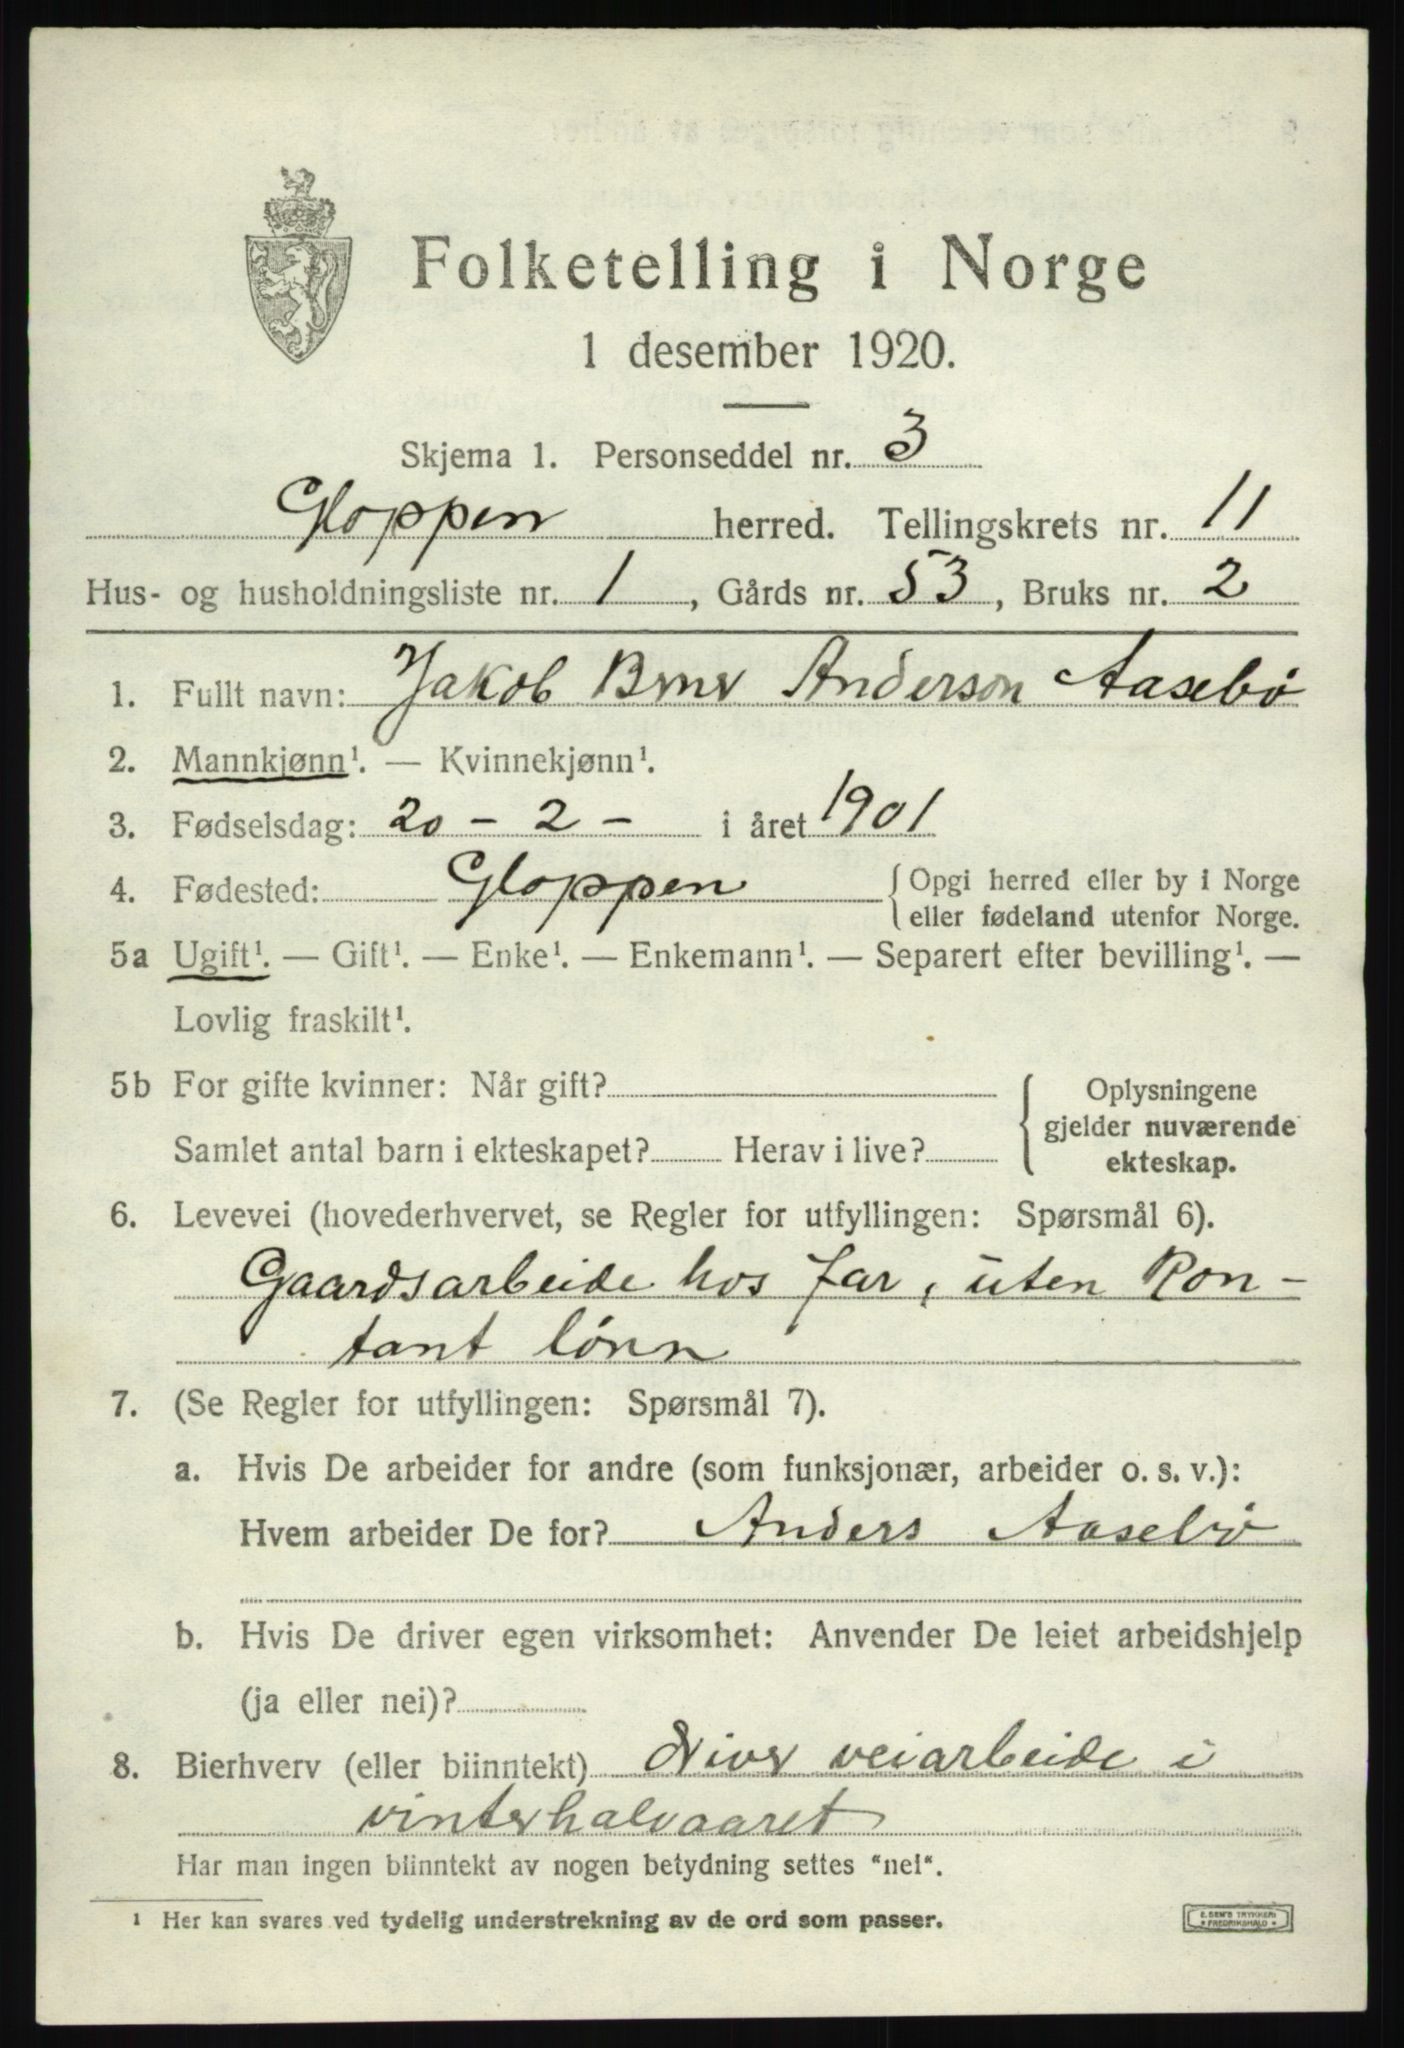 Folketelling i Norge
1 desember 1920.
Skjema 1. Personseddel nr. 3
Gloppen herred. Tellingskrets nr. 11
Hus- og husholdningsliste nr. 1, Gårds nr. 53, Bruks nr. 2
1. Fullt navn: Jakob Anderson Aasebø
2. Mannkjønn¹. — Kvinnekjønn¹.
3. Fødselsdag: 20 - 2 - i året 1901
4. Fødested: Gloppen { Opgi herred eller by i Norge
eller fødeland utenfor Norge.
5a Ugift¹. — Gift¹. — Enke¹. — Enkemann¹. — Separert efter bevilling¹. —
Lovlig fraskilt¹.
5b For gifte kvinner: Når gift? { Oplysningene
gjelder nuværende
Samlet antal barn i ekteskapet? Herav i live? ekteskap.
6. Levevei (hovederhvervet, se Regler for utfyllingen: Spørsmål 6).
Gaardsarbeide hos far, uten Kon-
tant lønn
7. (Se Regler for utfyllingen: Spørsmål 7).
a. Hvis De arbeider for andre (som funksjonær, arbeider o. s. v.):
Hvem arbeider De for? Anders Aasebø
b. Hvis De driver egen virksomhet: Anvender De leiet arbeidshjelp
(ja eller nei)?
8. Bierhverv (eller biinntekt) driver veiarbeide i
vinterhalvaaret
Har man ingen biinntekt av nogen betydning settes "nei".
¹ Her kan svares ved tydelig understrekning av de ord som passer.
E. SEM'S TRYKKERI
FREDRIKSHALD